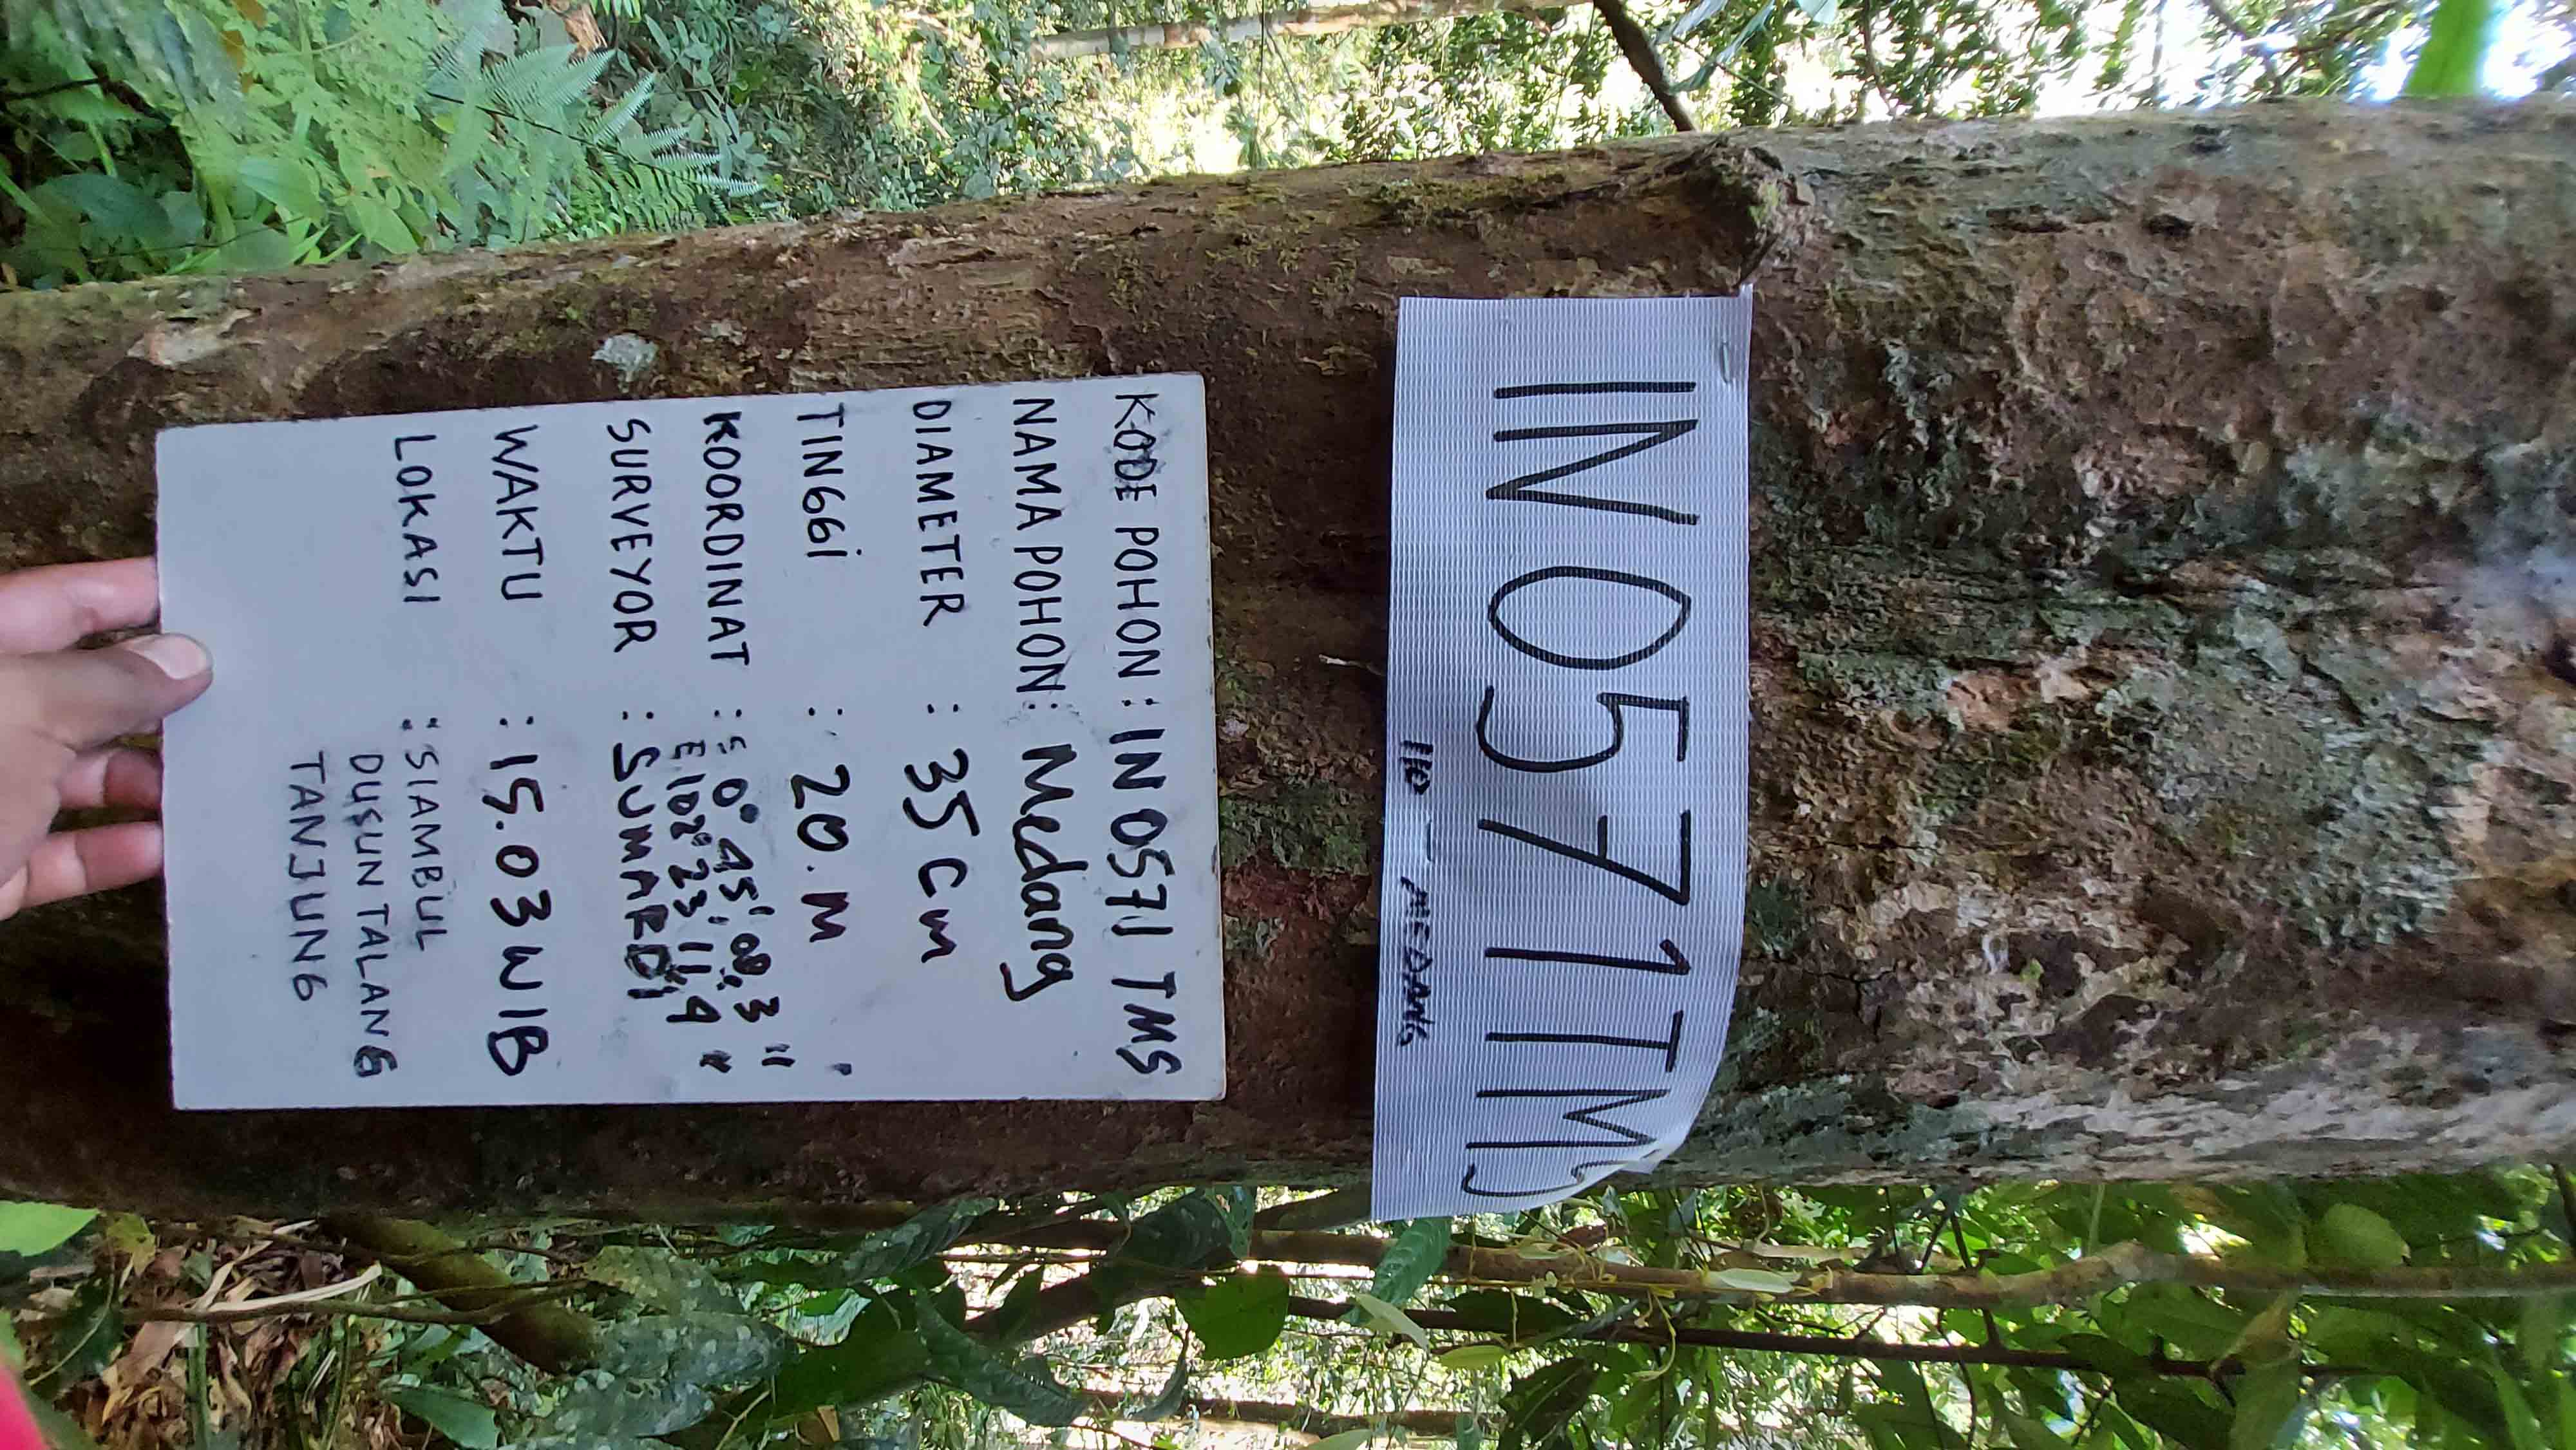 IN0571TMS
110 - MEDANG
KODE POHON : IN 0571 TMS
NAMA POHON : Medang
DIAMETER : 35 Cm
TINGGi : 20. M
KOORDINAT : S 0° 45' 08,3 "
E 102° 23' 11,4 "
SURVEYOR : SUMARDi
WAKTU : 15.03 WIB
LOKASI : SIAMBUL
DUSUN TALANG
TANJUNG